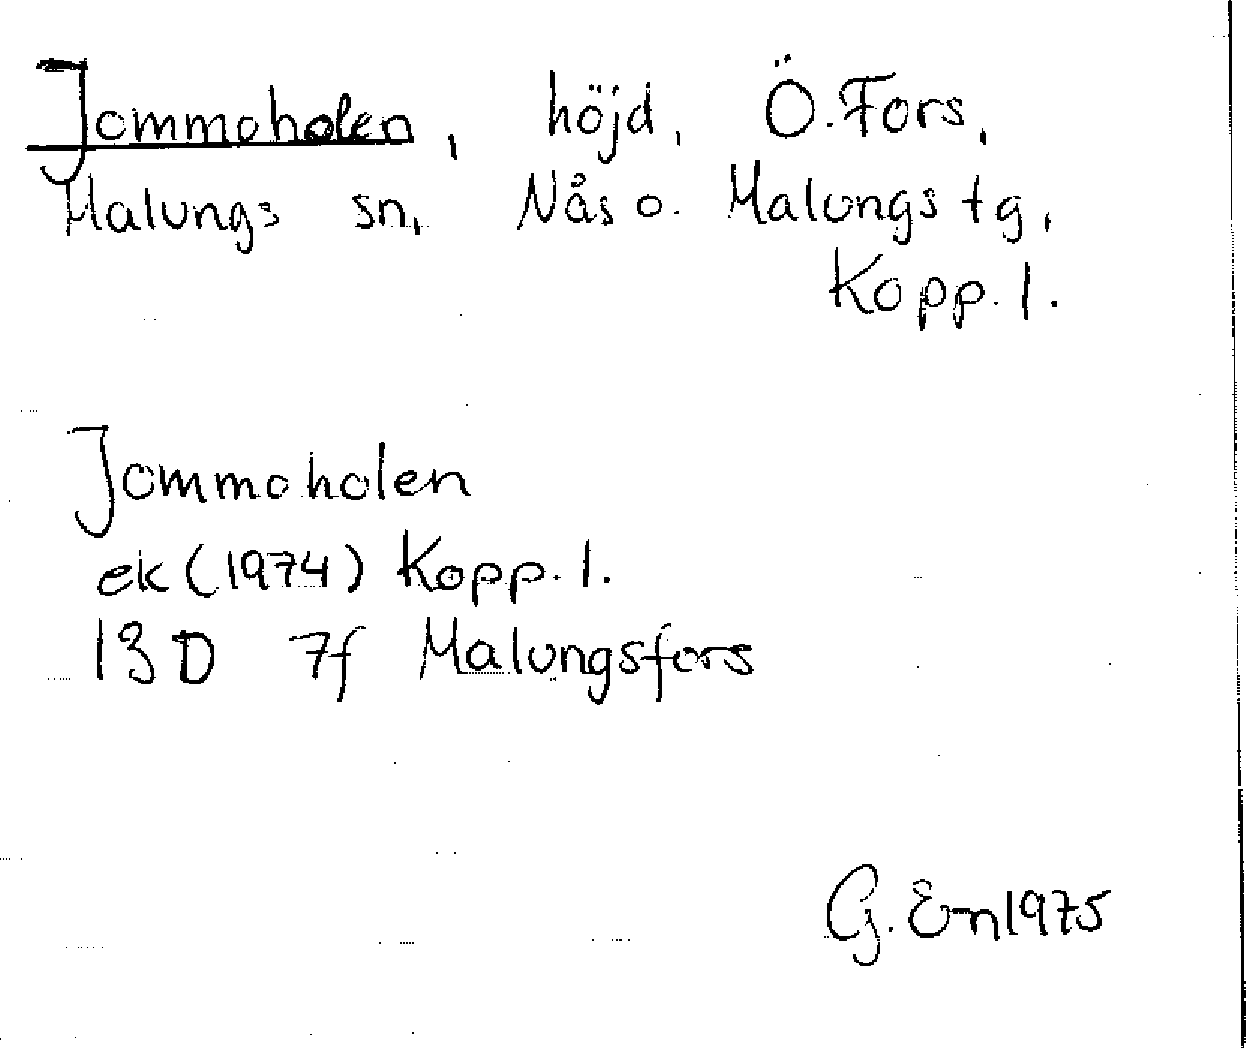 Jommoholen, höjd, Ö. Fors,
Malungs sn, Nås o. Malungs tg,
Kopp. l.
Jommoholen
ek (1974) Kopp. l.
13 D 7f Malungsfors
G. En 1975